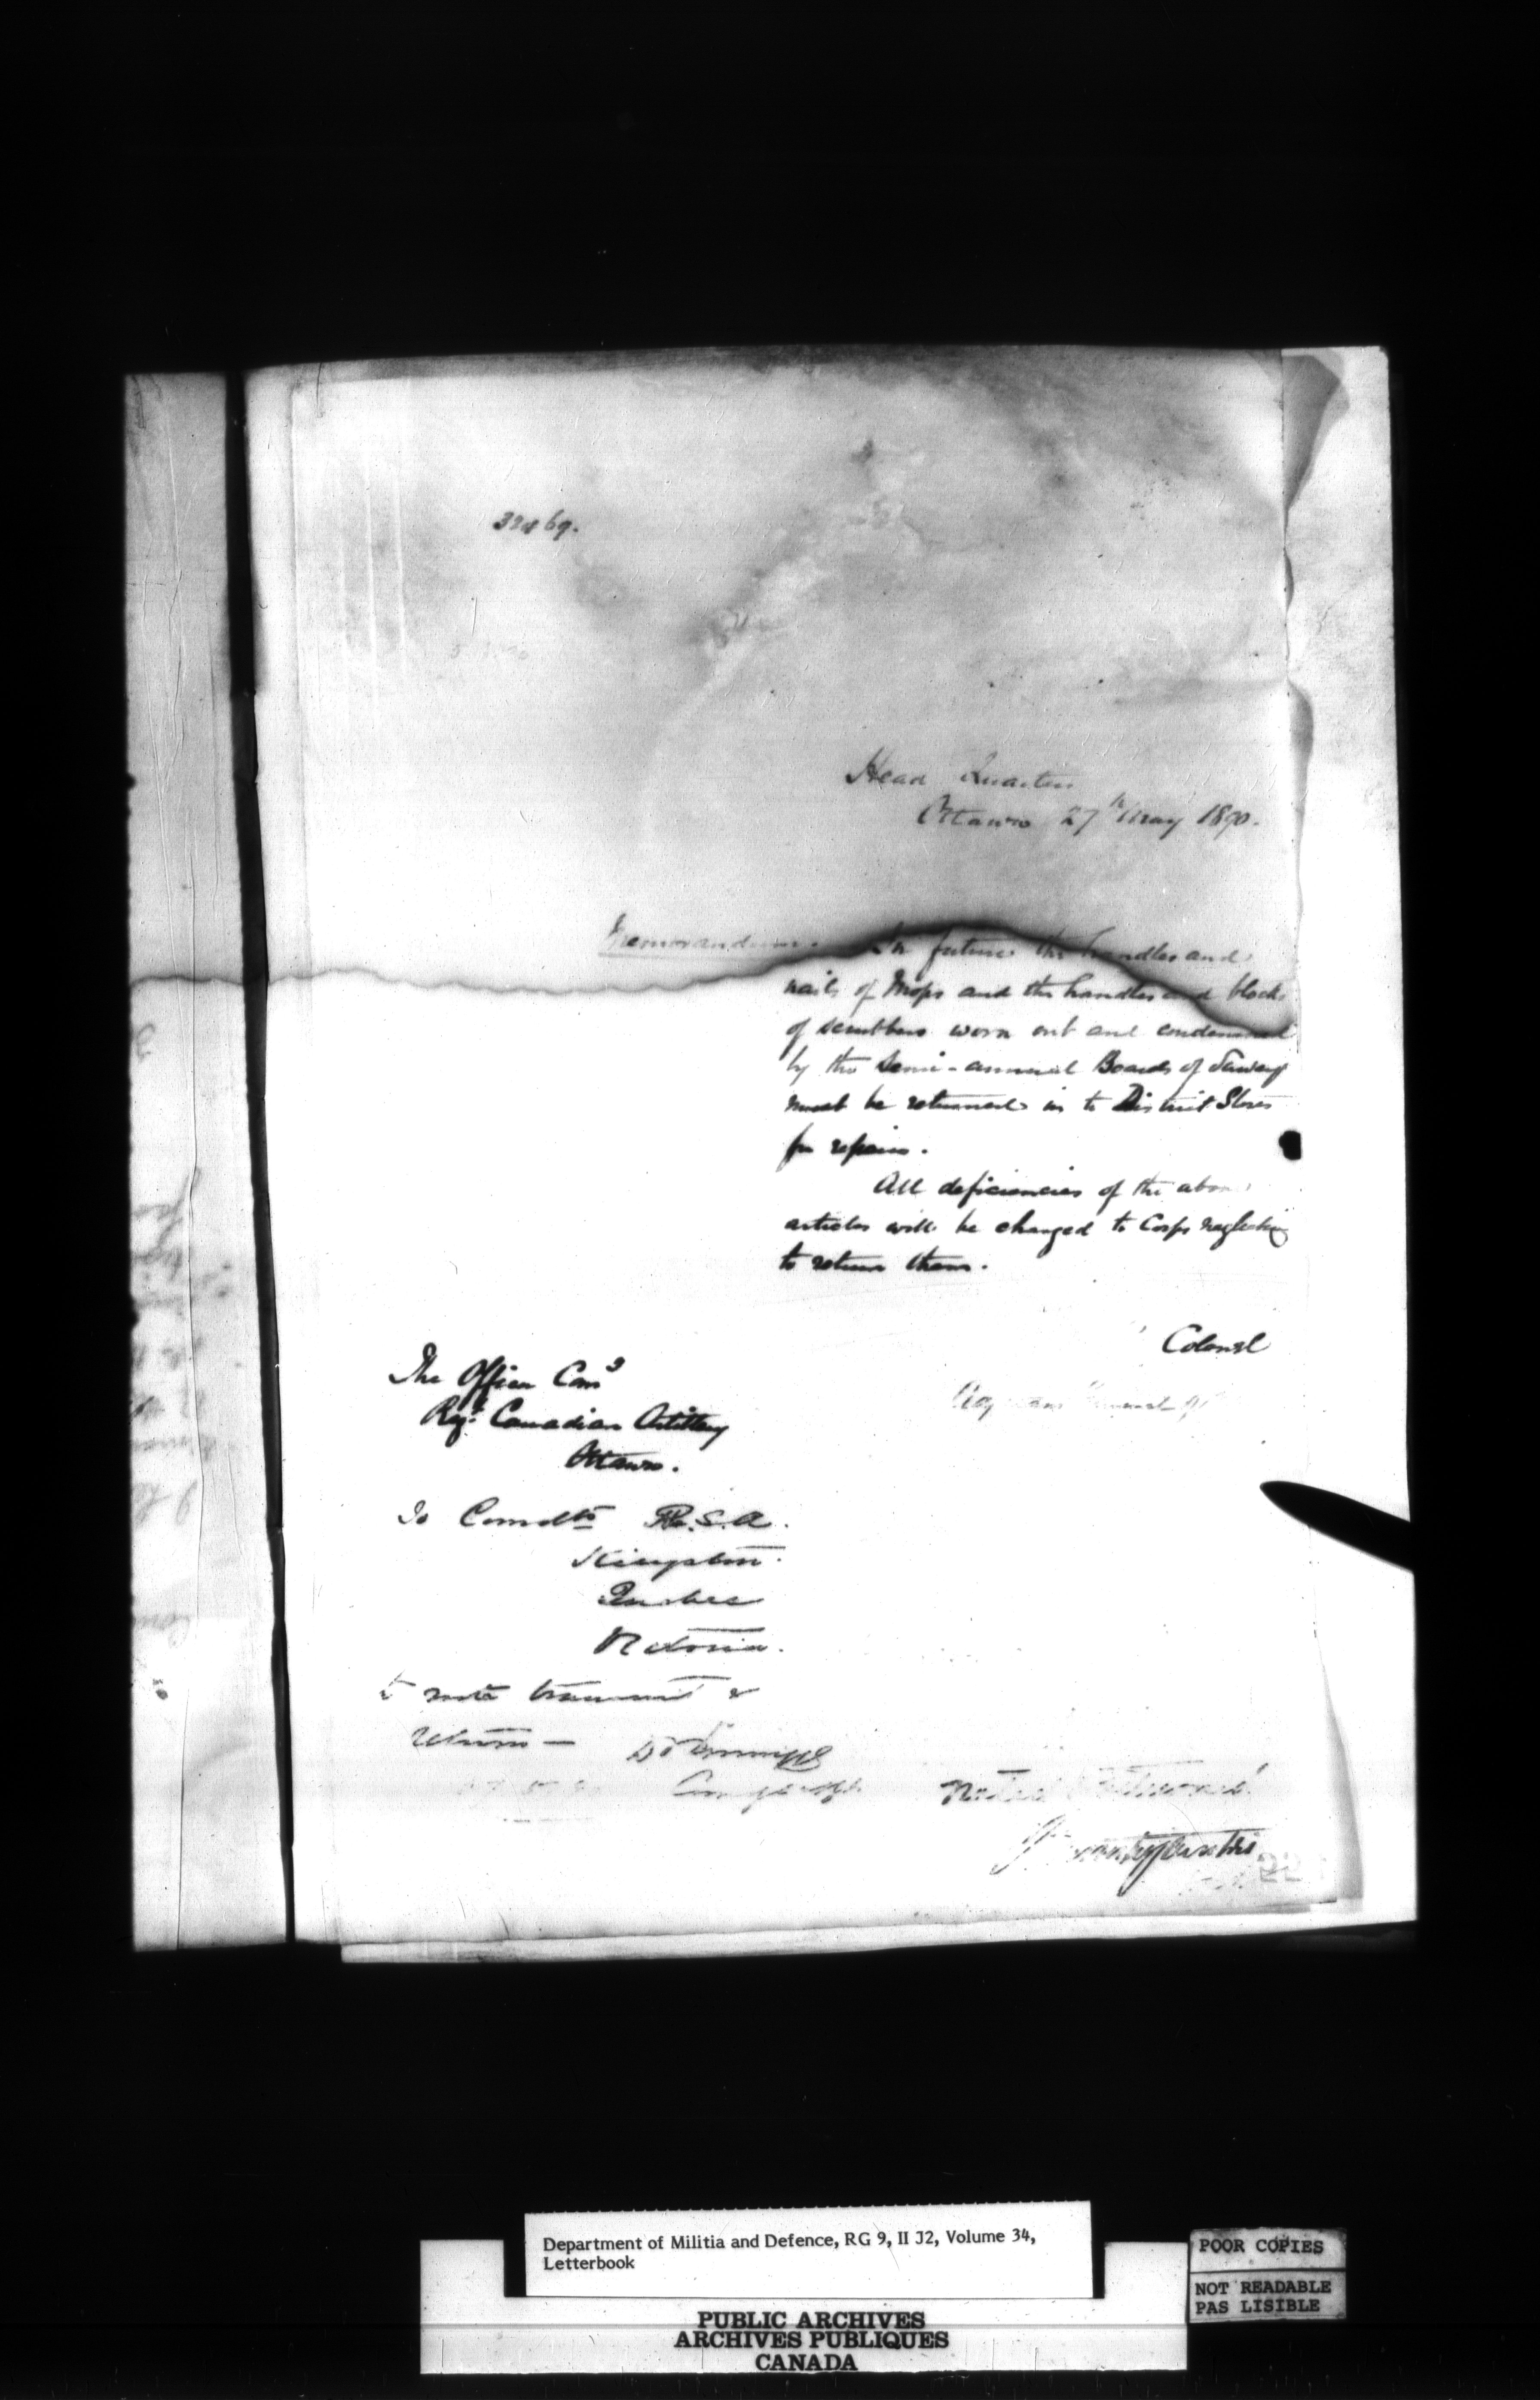 Head Quarters
Ottawa 27th May 1890.
Memorandum. In future the handles and
nails of Mops and the handles and blocks
of scrubbers worn out and condemned
by the Semi-annual Boards of Survey
must be returned in to District Stores
for repairs.
All deficiencies of the above
articles will be charged to Corps neglecting
to return them.
Colonel
General
The Officer Comg
Regt Canadian Artillery
Ottawa.
To Comdts R.S.A.
Kingston.
Quebec
Victoria.
To note transmit &
return —
Noted & Returned
Department of Militia and Defence, RG 9, II J2, Volume 34,
Letterbook
POOR COPIES
NOT READABLE
PAS LISIBLE
PUBLIC ARCHIVES
ARCHIVES PUBLIQUES
CANADA